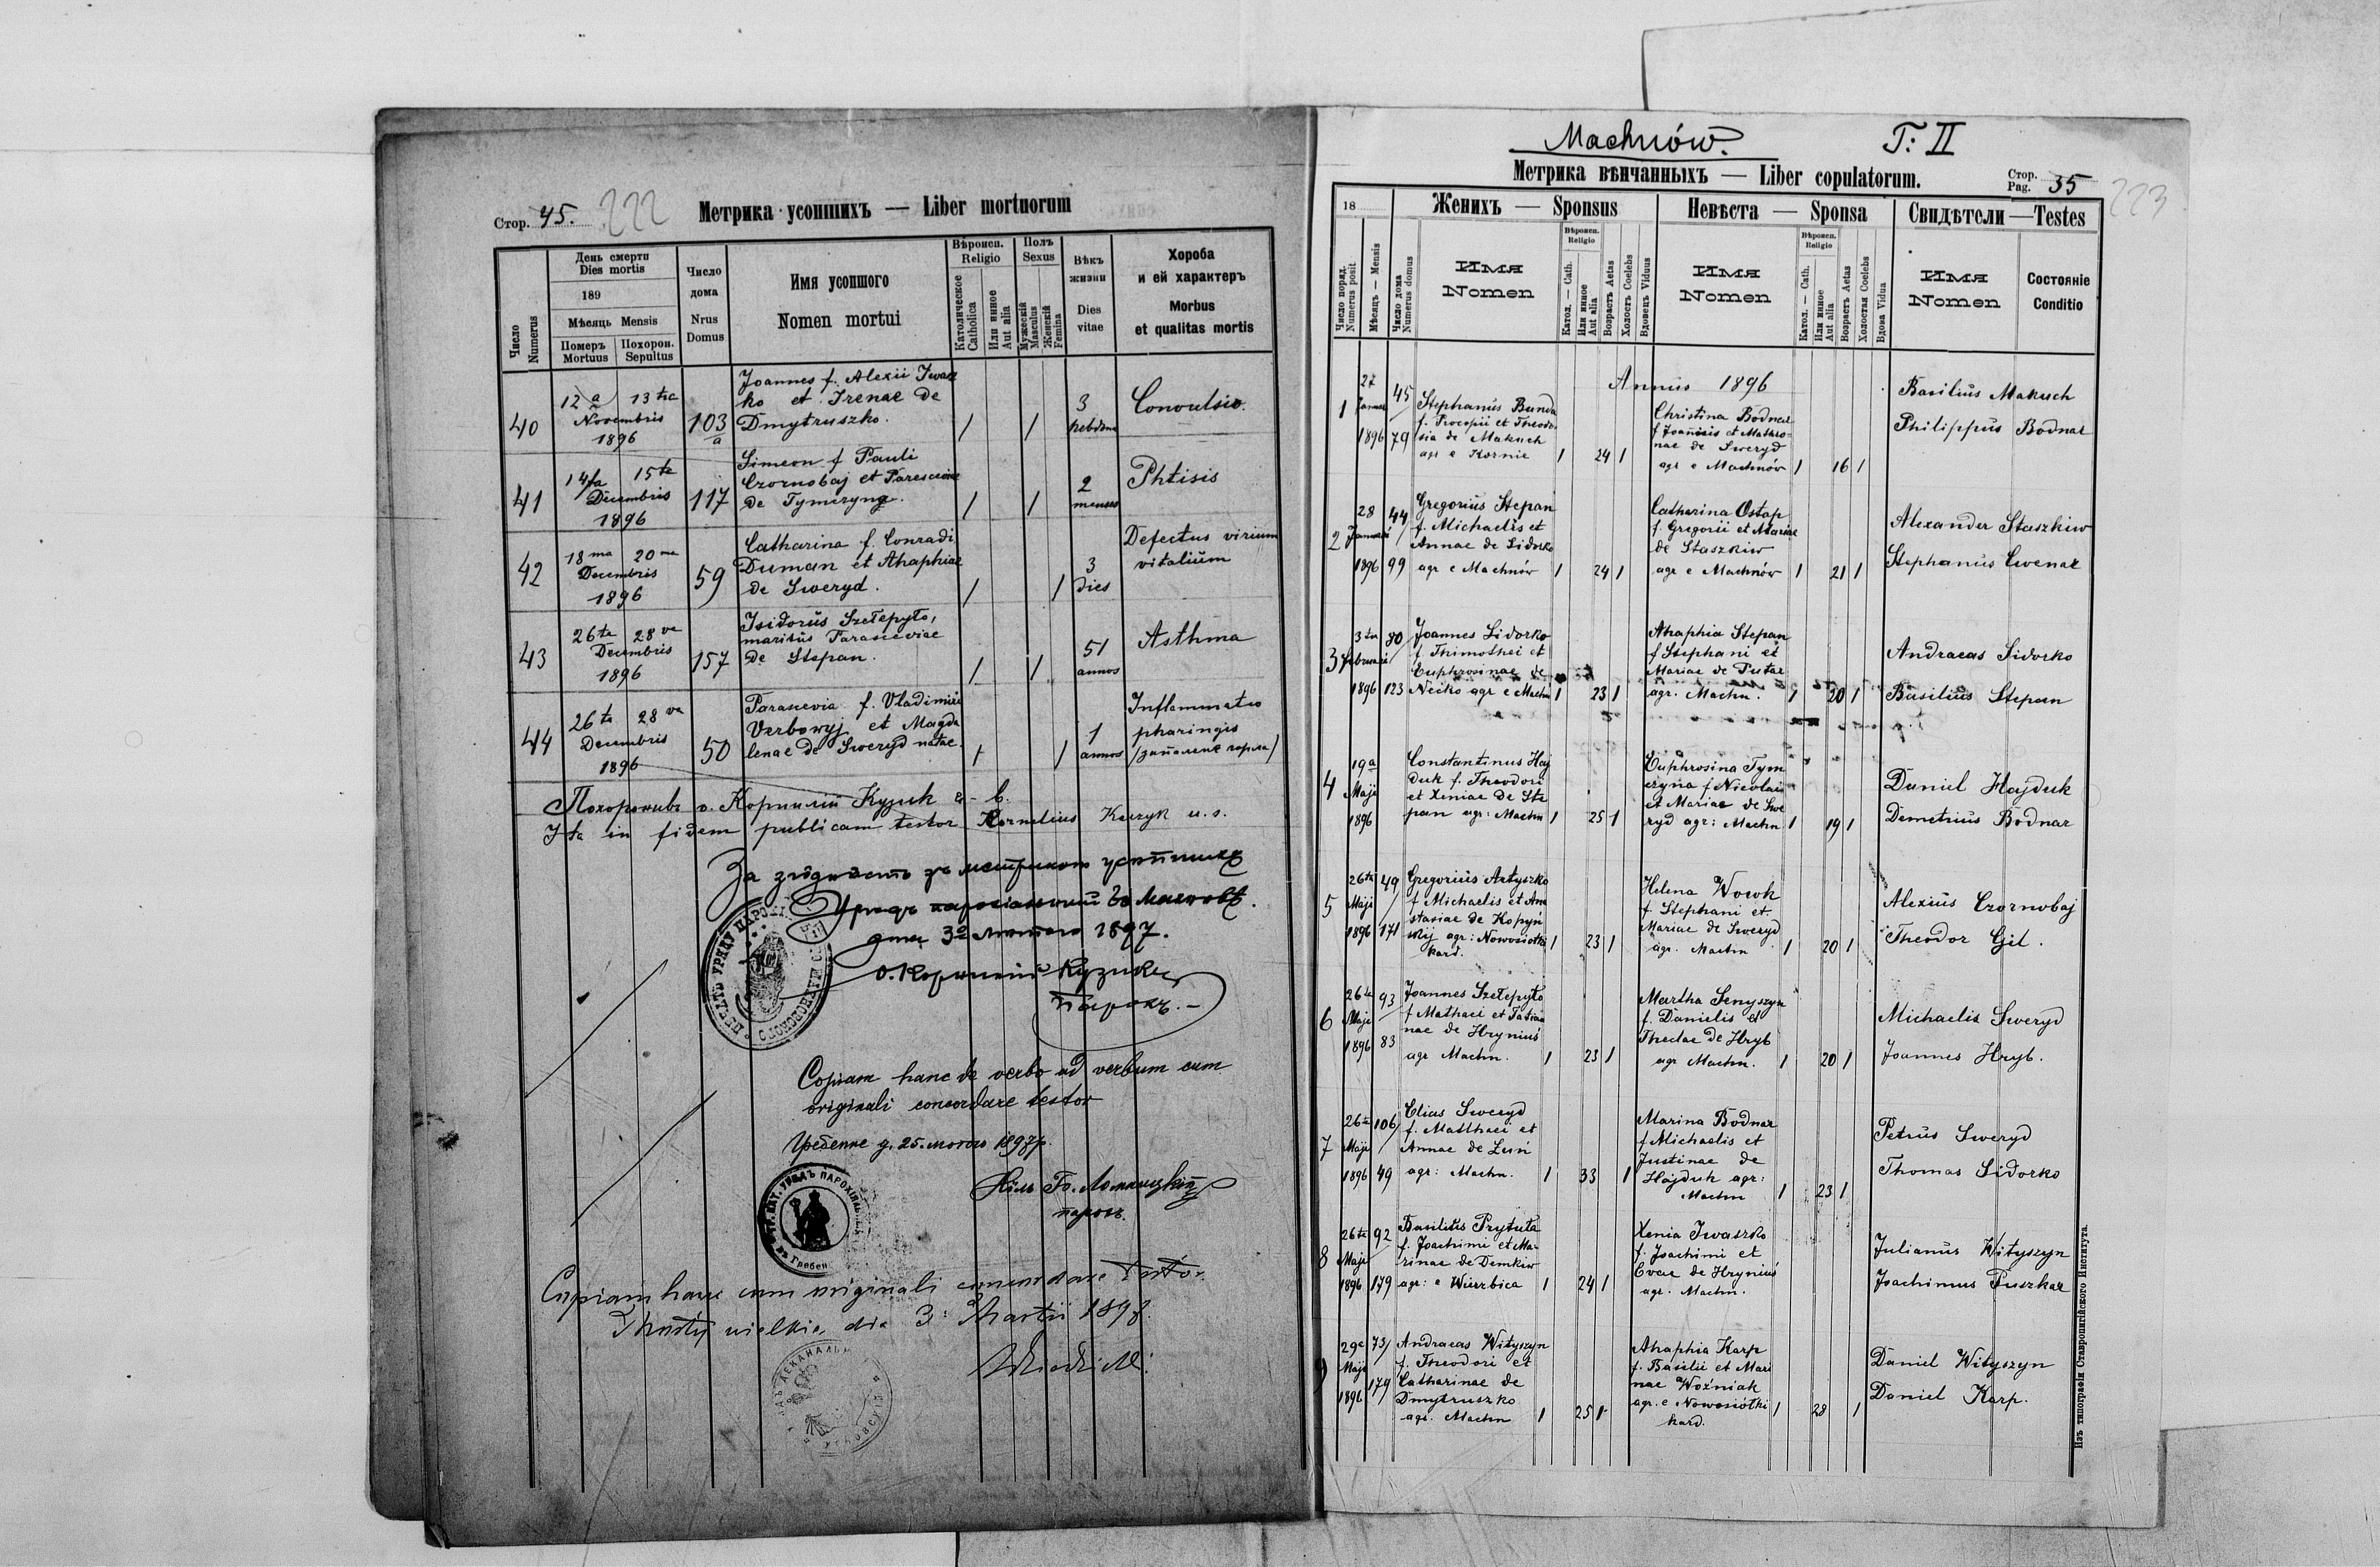 Стор. 45. 222 Метрика усопшихъ — Liber mortuorum
Число
Numerus
День смерти
Dies mortis
189
Мѣсяць Mensis
Померъ
Mortuus
Похорон.
Sepultus
Число
дома
Nrus
Domus
Имя усопшого
Nomen mortui
Вѣроисп.
Religio
Католическое
Catholica
Или инное
Aut alia
Полъ
Sexus
Мужескій
Masculus
Женскій
Femina
Вѣкъ
жизни
Dies
vitae
Хороба
и ей характеръ
Morbus
et qualitas mortis
40
12 a 13 tia
Novembris
1896
103
a
Joannes f. Alexii Iwasz
ko et Irenae de
Dmytruszko.
1 1
3
hebdom
Convulsio.
41
14ta 15ta
Decembris
1896
117
Simeon f Pauli
Czornobaj et Parasceviae
de Tymczyna.
1 1
2
menses
Phtisis
42
18 ma 20 ma
Decembris
1896
59
Catharina f. Conradi
Duman et Ahaphiae
de Sweryd.
1 1
3
dies
Defectus virium
vitalium
43
26ta 28 va
Decembris
1896
157
Isidorus Szełepyło,
maritus Parasceviae
de Stepan.
1 1
51
annos
Asthma
44
26 ta 28 va
Decembris
1896
50
Parascevia f. Vladimiri
Verbowyj et Magda
lenae de Sweryd natae.
1 1
1
annos
Inflammatio
pharingis
(запаленє горла)
Похоронивъ о. Корнилій Кузык
Ita in fidem publicam testor Kornelius Kuzyk
За згôдность зъ метрикою усопшихъ
Урядъ парохіяльный въ Махновѣ.
дня 3о лютого 1897.
о. Корнилій Кузикъ
Парохъ. –
Copiam hanc de verbo ad verbum cum
originali concordare testor
Гребенне д. 25. лютого 1897р.
парох.
Copiam hanc cum originali concordare testor.
die 3: Martii 1897.
Machnów. T: II
Метрика вѣнчанныхъ — Liber copulatorum.
Стор.
Pag. 35 223
18
Женихъ — Sponsus
Невѣста — Sponsa
Свидѣтели — Testes
Число поряд.
Numerus posit.
Мѣсяцъ — Mensis
Число дома
Numerus domus
Имя
Nomen
Вѣроисп.
Religio
Катол. — Cath.
Или инное
Aut alia
Возрастъ Aetas
Холостъ Coelebs
Вдовецъ Viduus
Имя
Nomen
Вѣроисп.
Religio
Катол. — Cath.
Или инное
Aut alia
Возрастъ Aetas
Холостая Coelebs
Вдова Vidua
Имя
Nomen
Состояніе
Conditio
Annus 1896
1
27
Januar
1896
45
79
Stephanus Bunda
f. Procopii et Theodo-
sia de Makuch
agr e Kornie
1 24 1
Christina Bodnar
f Joannis et Mathro-
nae de Sweryd
agr e Machnów
1 16 1
Basilius Makuch
Philippus Bodnar
2
28
Januarii
1896
44
99
Gregorius Stepan
f. Michaelis et
Annae de Sidorko
agr e Machnów
1 24 1
Catharina Ostap
f. Gregorii et Mariae
de Staszkiw
agr e Machnów
1 21 1
Alexander Staszkiw
Stephanus Cwenar
3
3tia
Februarii
1896
80
123
Joannes Sidorko
f Thimothei et
Euphrosinae de
Necko agr e Machn
1 23 1
Ahaphia Stepan
f Stephani et
Mariae de Putar
agr. Machn.
1 20 1
Andraeas Sidorko
Basilius Stepan
4
19a
Maji
1896
Constantinus Haj
duk f. Theodori
et Xeniae de Ste
pan agr: Machn
1 25 1
Euphrosina Tym
czyna f Nicolai
et Mariae de Swe
ryd agr: Machn
1 19 1
Daniel Hajduk
Demetrius Bodnar
5
26ta
Maji
1896
49
171
Gregorius Artyszko
f Michaelis et Ana
stasiae de Kopyń
skij agr: Nowosiołki
kard.
1 23 1
Helena Wowk
f. Stephani et
Mariae de Sweryd
agr. Machn
1 20 1
Alexius Czornobaj
Theodor Gil.
6
26ta
Maji
1896
93
83
Joannes Szełepyło
f Mathaei et Tatian
nae de Hryniuś
agr Machn.
1 23 1
Martha Senyszyn
f. Danielis et
Theclae de Hryb
agr Machn.
1 20 1
Michaelis Sweryd
Joannes Hryb.
7
26ta
Maji
1896
106
49
Elias Sweryd
f. Matthaei et
Annae de Luń
agr: Machn.
1 33 1
Marina Bodnar
f Michaelis et
Justinae de
Hajduk agr:
Machn
1 23 1
Petrus Sweryd
Thomas Sidorko
8
26ta
Maji
1896
92
179
Basilius Prytuła
f. Joachimi et Ma-
rinae de Demkiw
agr: e Wierzbica
1 24 1
Xenia Iwaszko
f. Joachimi et
Evae de Hryniuś
agr. Machn.
Julianus Wityszyn
Joachimus Puszkar
9
29e
Maji
1896
73
179
Andraeas Wityszyn
f. Theodori et
Catharinae de
Dmytruszko
agr. Machn
1 25 1
Ahaphia Karp
f. Basilii et Mari
nae Woźniak
agr. e Nowosiółki
kard.
1 28 1
Daniel Wityszyn
Daniel Karp.
Изъ типографіи Ставропигійского Института.